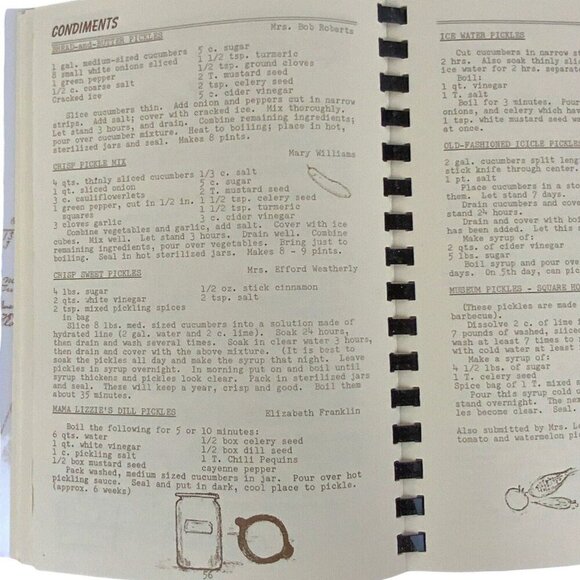 CONDIMENTS
BREAD-and-BUTTER PICKLES
Mrs. Bob Roberts
1 gal. medium-sized cucumbers 5 c. sugar
8 small white onions sliced 1 1/2 tsp. turmeric
1 green pepper 1/2 tsp. ground cloves
1/2 c. coarse salt 2 T. mustard seed
Cracked ice 2 tsp. celery seed
5 c. cider vinegar
Slice cucumbers thin. Add onion and peppers cut in narrow
strips. Add salt; cover with cracked ice. Mix thoroughly.
Let stand 3 hours, and drain. Combine remaining ingredients;
pour over cucumber mixture. Heat to boiling; place in hot,
sterilized jars and seal. Makes 8 pints.
Mary Williams
CRISP PICKLE MIX
4 qts. thinly sliced cucumbers 1/3 c. salt
1 qt. sliced onion 5 c. sugar
3 c. cauliflowerlets 2 T. mustard seed
1 green pepper, cut in 1/2 in. 1 1/2 tsp. celery seed
squares 1 1/2 tsp. turmeric
3 cloves garlic 3 c. cider vinegar
Combine vegetables and garlic, add salt. Cover with ice
cubes. Mix well. Let stand 3 hours. Drain well. Combine
remaining ingredients, pour over vegetables. Bring just to
boiling. Seal in hot sterilized jars. Makes 8 - 9 pints.
CRISP SWEET PICKLES
Mrs. Efford Weatherly
4 lbs. sugar 1/2 oz. stick cinnamon
2 qts. white vinegar 2 tsp. salt
2 tsp. mixed pickling spices
in bag
Slice 8 lbs. med. sized cucumbers into a solution made of
hydrated line (2 gal. water and 2 c. lime). Soak 24 hours,
then drain and wash several times. Soak in clear water 3 hours,
then drain and cover with the above mixture. (It is best to
soak the pickles all day and make the syrup that night. Leave
pickles in syrup overnight. In morning put on and boil until
syrup thickens and pickles look clear. Pack in sterilized jars
and seal. These will keep a year, crisp and good. Boil them
about 35 minutes.
MAMA LIZZIE'S DILL PICKLES Elizabeth Franklin
Boil the following for 5 or 10 minutes:
6 qts. water 1/2 box celery seed
1 qt. white vinegar 1/2 box dill seed
1 c. pickling salt 1 T. Chili Pequins
1/2 box mustard seed cayenne pepper
Pack washed, medium sized cucumbers in jar. Pour over hot
pickling sauce. Seal and put in dark, cool place to pickle.
(approx. 6 weeks)
56
ICE WATER PICKLES
Cut cucumbers in narrow s
2 hrs. Also soak thinly slic
ice water for 2 hrs. separat
Boil:
1 qt. vinegar
1 T. salt
Boil for 3 minutes. Pour
onions, and celery which hav
1 tsp. white mustard seed w
at once.
OLD-FASHIONED ICICLE PICKLES
2 gal. cucumbers split leng
stick knife through center.
1 pt. salt
Place cucumbers in a sto
them. Let stand 7 days.
Drain and cover cucumber
stand 24 hours.
Drain and cover with boil
has been added. Let this
Make syrup of:
2 qts. of cider vinegar
5 lbs. sugar
Boil syrup and pour over
days. On 5th day, can pi
MUSEUM PICKLES - SQUARE HO
(These pickles are made
barbecue).
Dissolve 2 c. of lime i
7 pounds of washed, slice
wash at least 7 times to
with cold water at least
Make a syrup of:
4 1/2 lbs. of sugar
1 T. celery seed
Spice bag of 1 T. mixed
Pour this syrup cold
stand overnight. The nex
les become clear. Seal.
Also submitted by Mrs. Le
tomato and watermelon pi